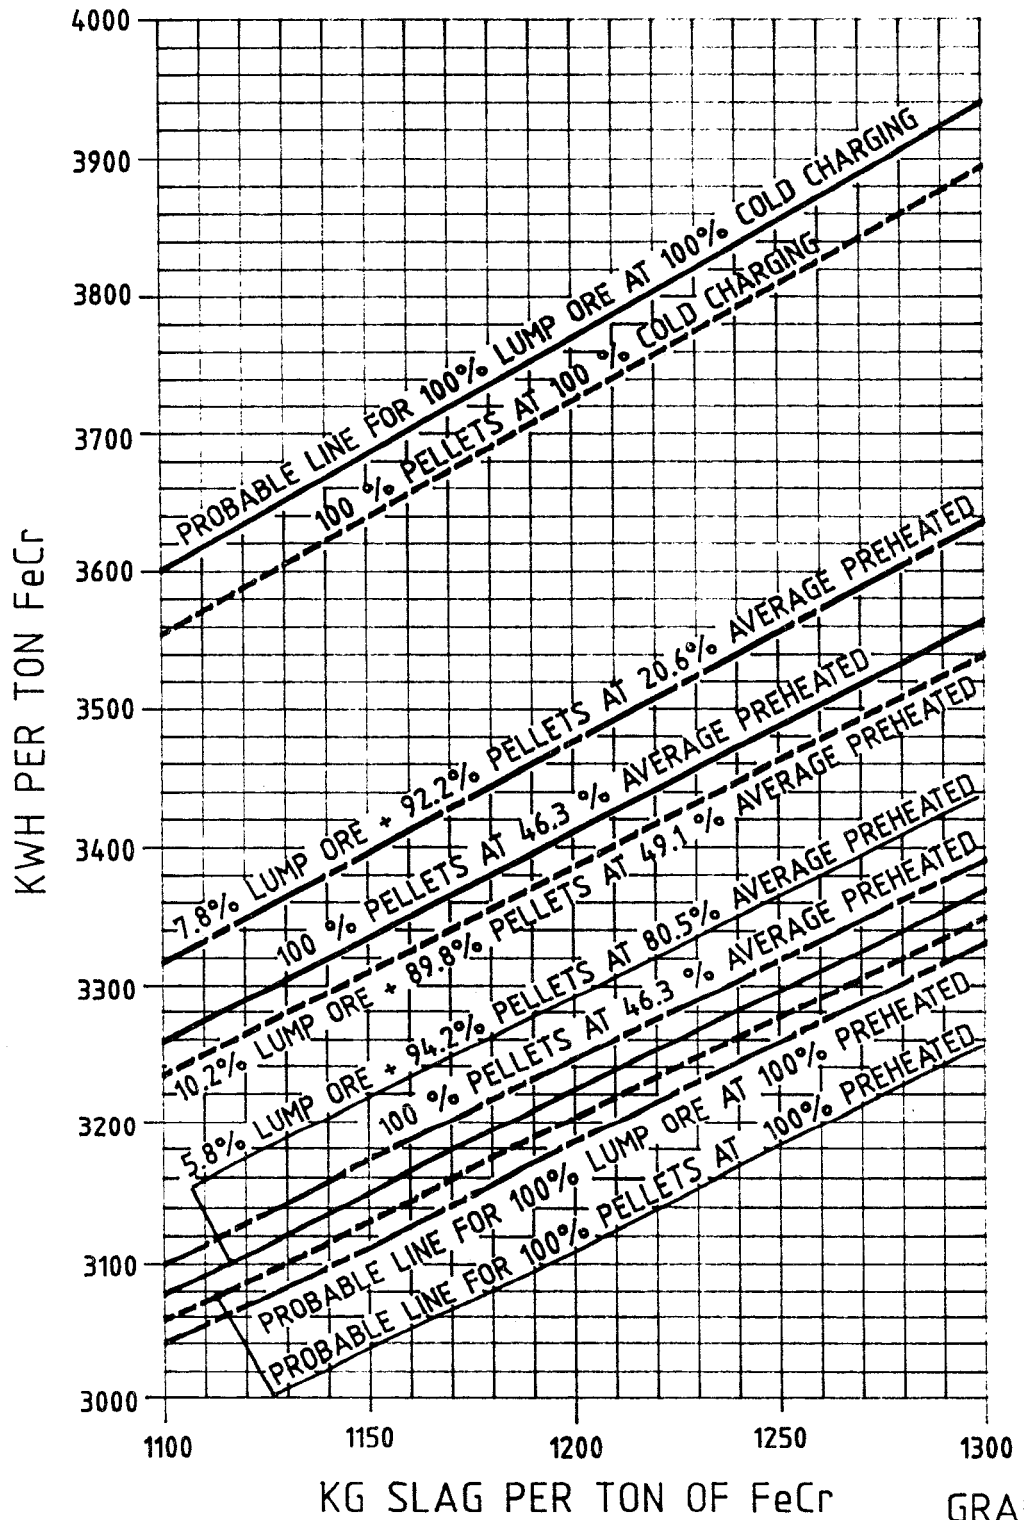 4000
3900
3800
3700
3600
3500
3400
3300
3200
3100
3000
KWH PER TON FeCr
PROBABLE LINE FOR 100% LUMP ORE AT 100% COLD CHARGING
100 % PELLETS AT 100 % COLD CHARGING
7.8% LUMP ORE + 92.2% PELLETS AT 20.6% AVERAGE PREHEATED
100 % PELLETS AT 46.3 % AVERAGE PREHEATED
10.2% LUMP ORE + 89.8% PELLETS AT 49.1 % AVERAGE PREHEATED
5.8% LUMP ORE + 94.2% PELLETS AT 80.5% AVERAGE PREHEATED
100 % PELLETS AT 46.3 % AVERAGE PREHEATED
PROBABLE LINE FOR 100% LUMP ORE AT 100% PREHEATED
PROBABLE LINE FOR 100% PELLETS AT 100% PREHEATED
1100
1150
1200
1250
1300
KG SLAG PER TON OF FeCr
GRA